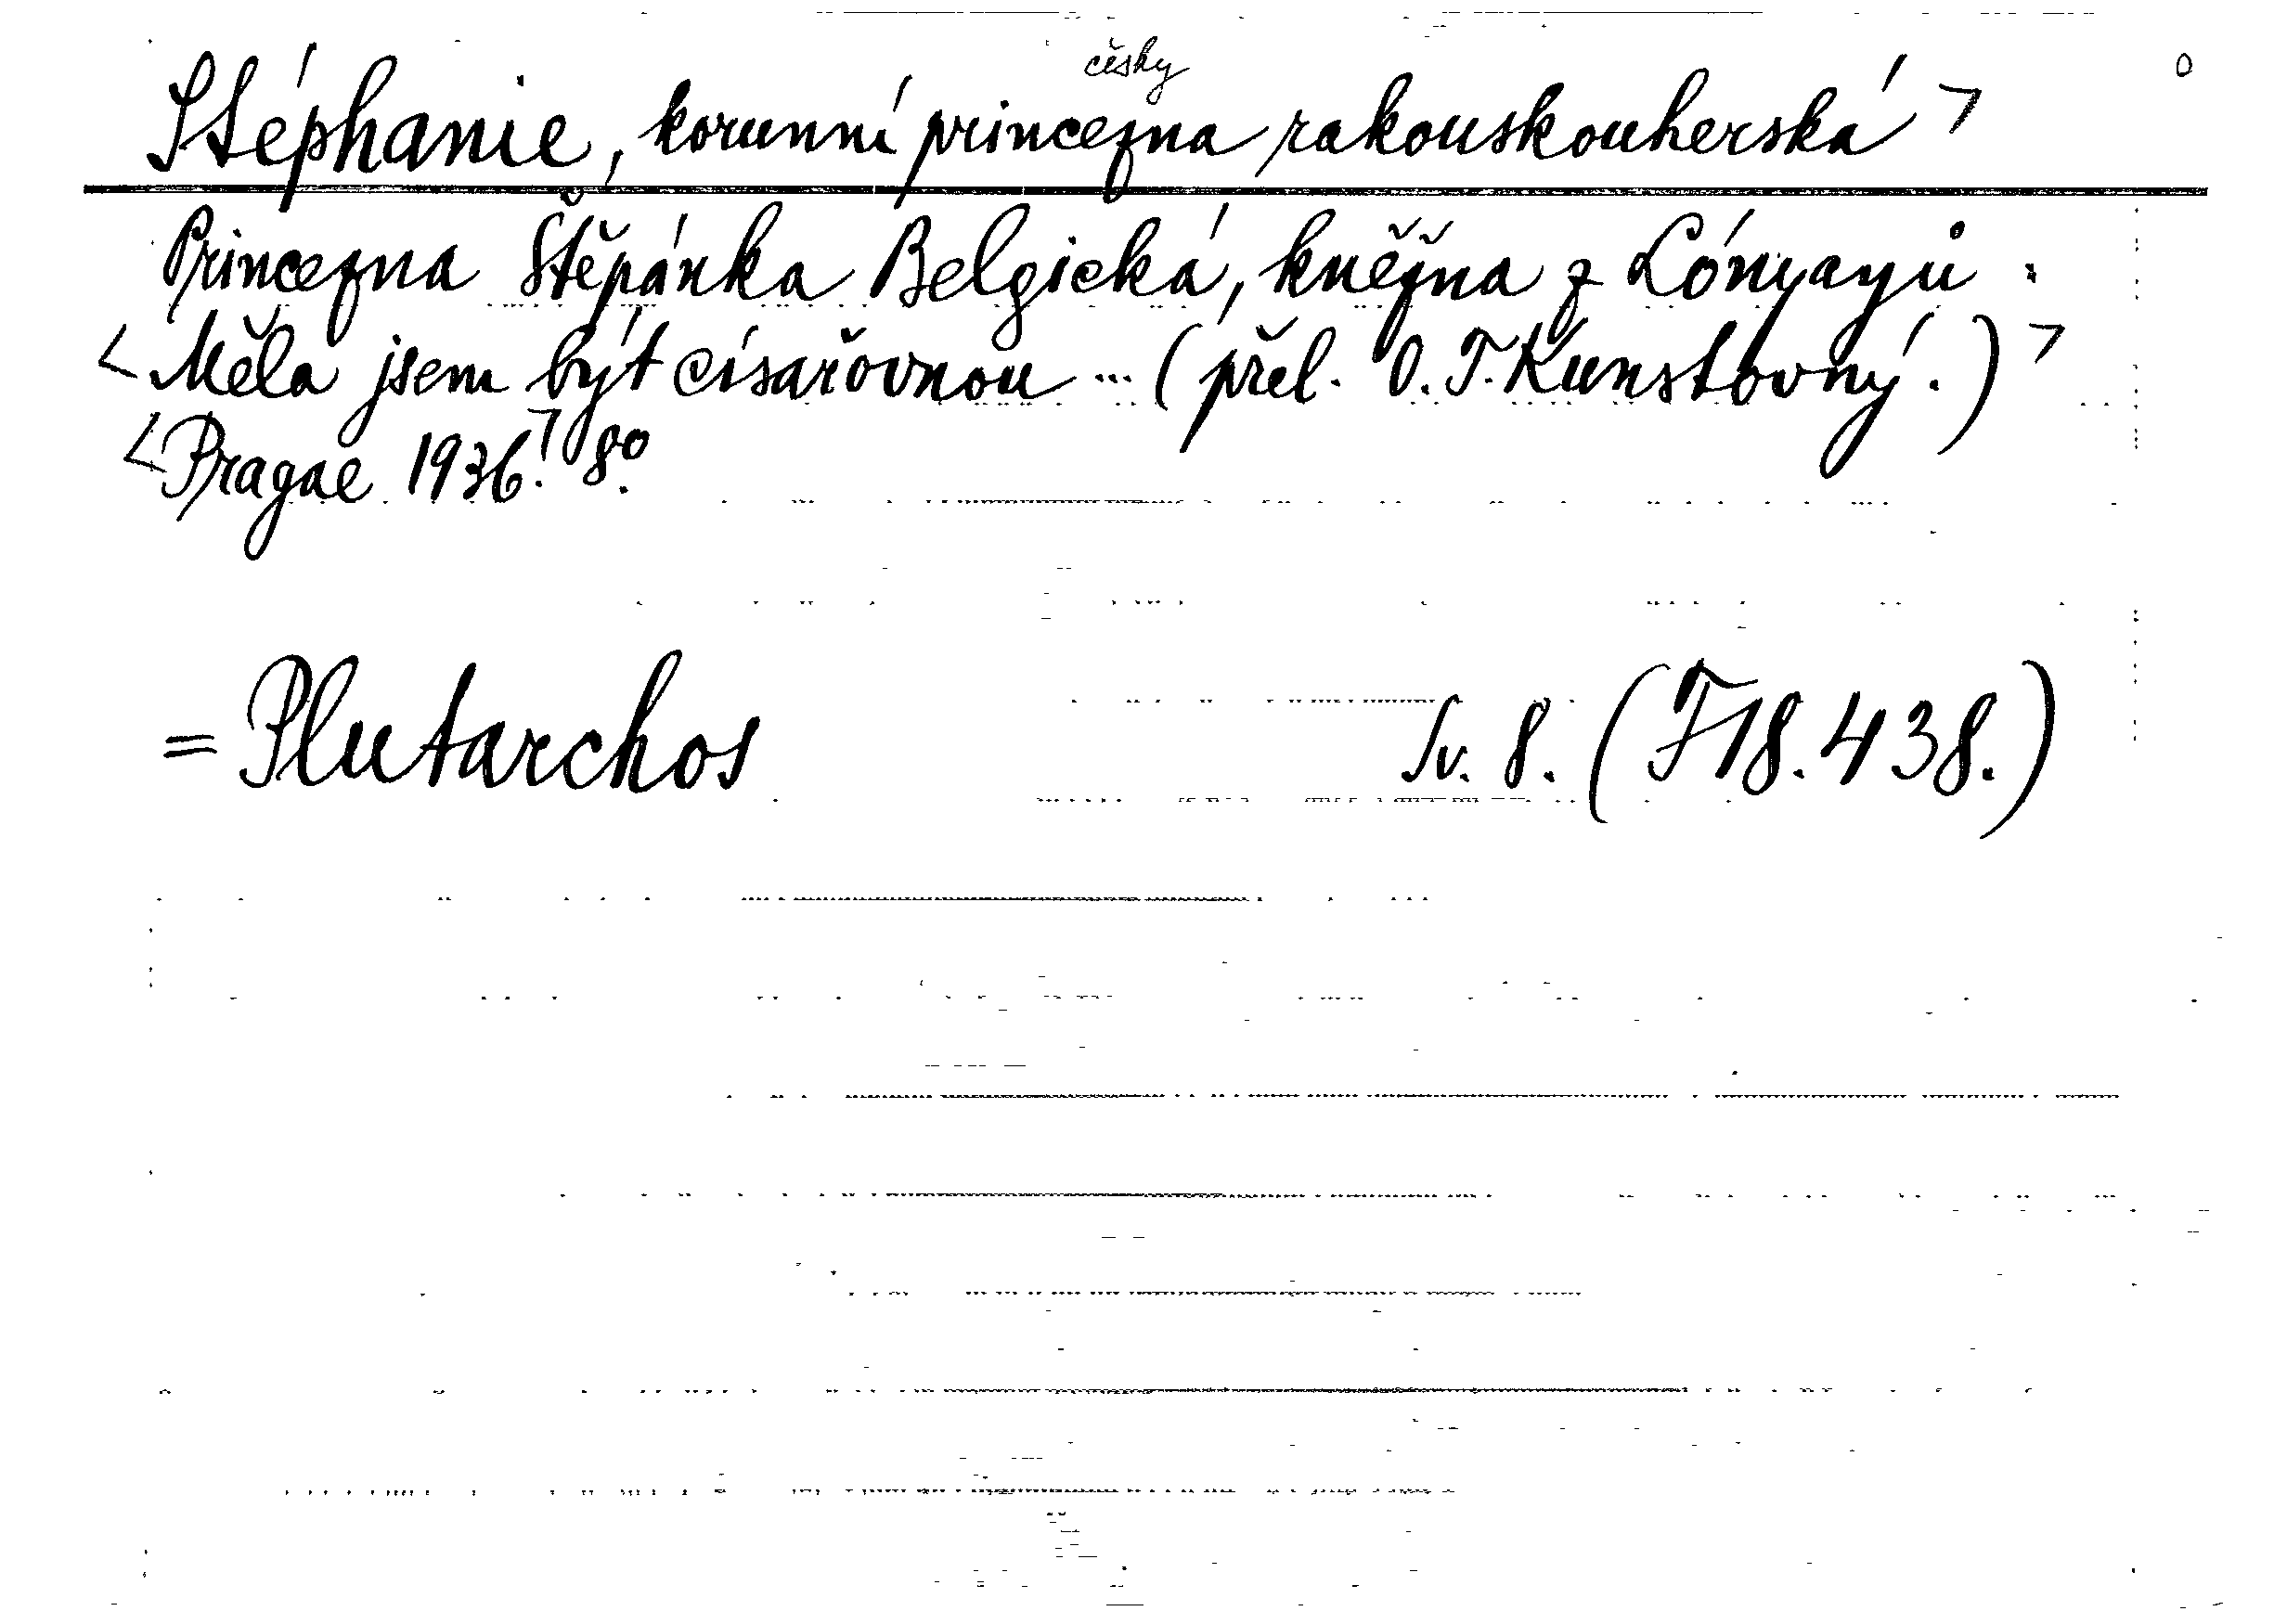 česky
Stéphanie, korunní princezna rakouskouherská > 0
Princezna Štěpánka Belgická, kněžna z Lónyayů.
< Měla jsem být císařovnou ... (přel. O. F. Kunstovný.) >
< Pragae 1936. > 8°.
= Plutarchos Sv. 8. (F 18.438.)